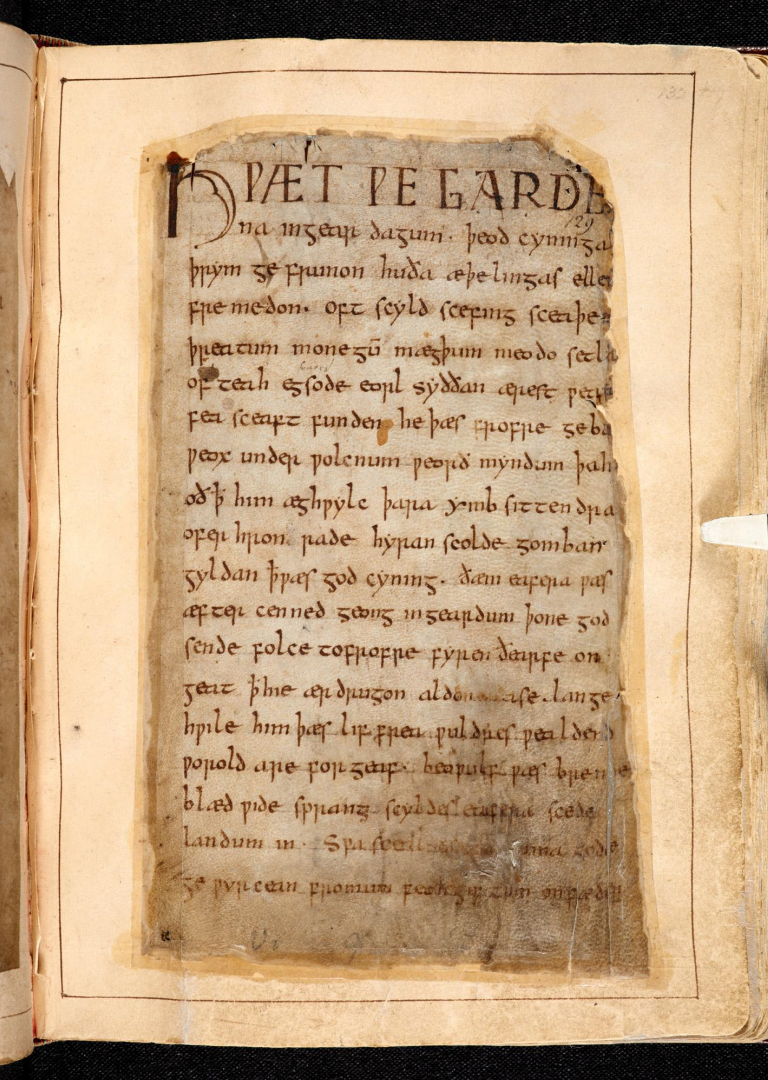 HǷÆT ǷE GARDE
na ingear dagum . þeod cyninga
þrym ge frunon huða æþelingas elle
fremedon . oft scyld scefing sceaþen
þreatum monegū mægþum meodo setla
of teah egsode eorl syððan ærest ƿear
fea sceaft funden he þæs frofre geba
ƿeox under ƿolcnum ƿeorð myndum þah
oð ꝥ him æghƿylc þara ymb sittendra
ofer hron rade hyran scolde gomban
gyldan ꝥ ƿæs god cyning . ðæm eafera ƿæs
æfter cenned geong ingeardum þone god
sende folce tofrofre fyren ðearfe on
geat ꝥ hie ær drugon aldor ase . lange
hƿile him þæs lif frea ƿuldres ƿealdend
ƿorold are for geaf . beoƿulf ƿæs breme
blæd ƿide sprang scyldes eafera scede
landum in . Sƿa sceal guma gode
ge ƿyrcean fromum feoh giftum on fæder
129
132